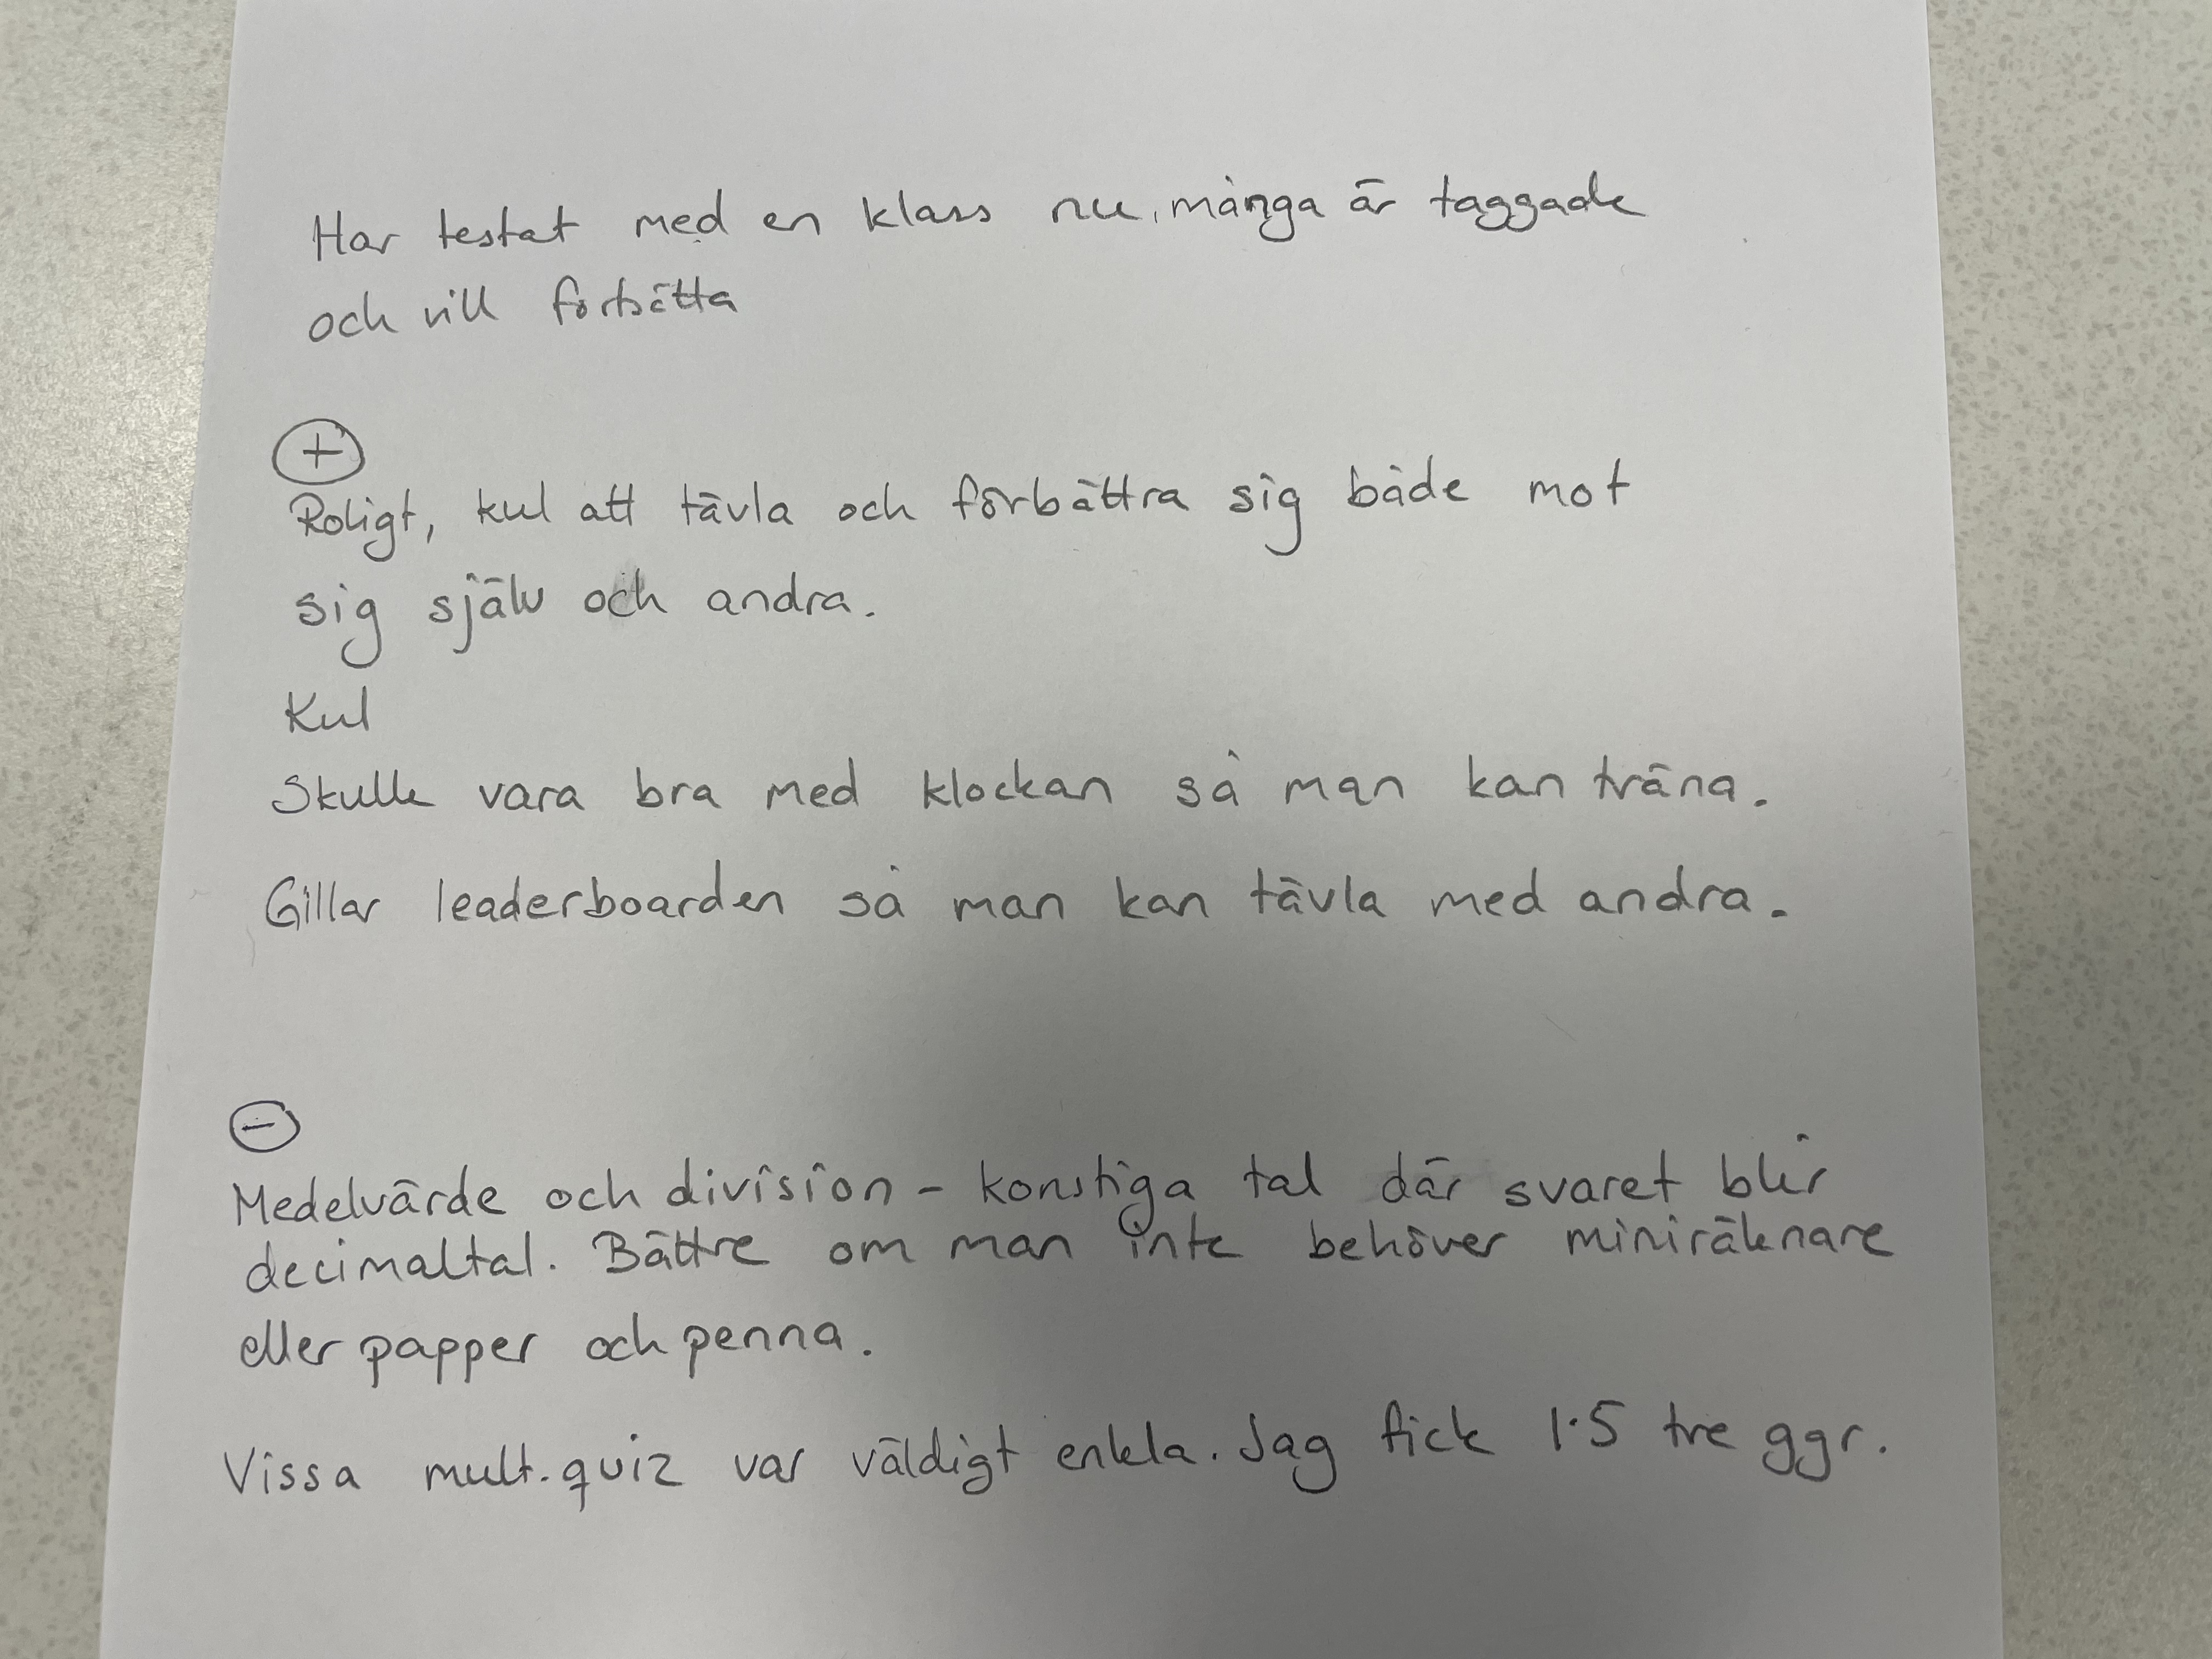 Har testat med en klass nu, många är taggade
och vill fortsätta
+
Roligt, kul att tävla och förbättra sig både mot
sig själv och andra.
Kul
Skulle vara bra med klockan så man kan träna.
Gillar leaderboarden så man kan tävla med andra.
-
Medelvärde och division - konstiga tal där svaret blir
decimaltal. Bättre om man inte behöver miniräknare
eller papper och penna.
Vissa mult.quiz var väldigt enkla. Jag fick 1·5 tre ggr.